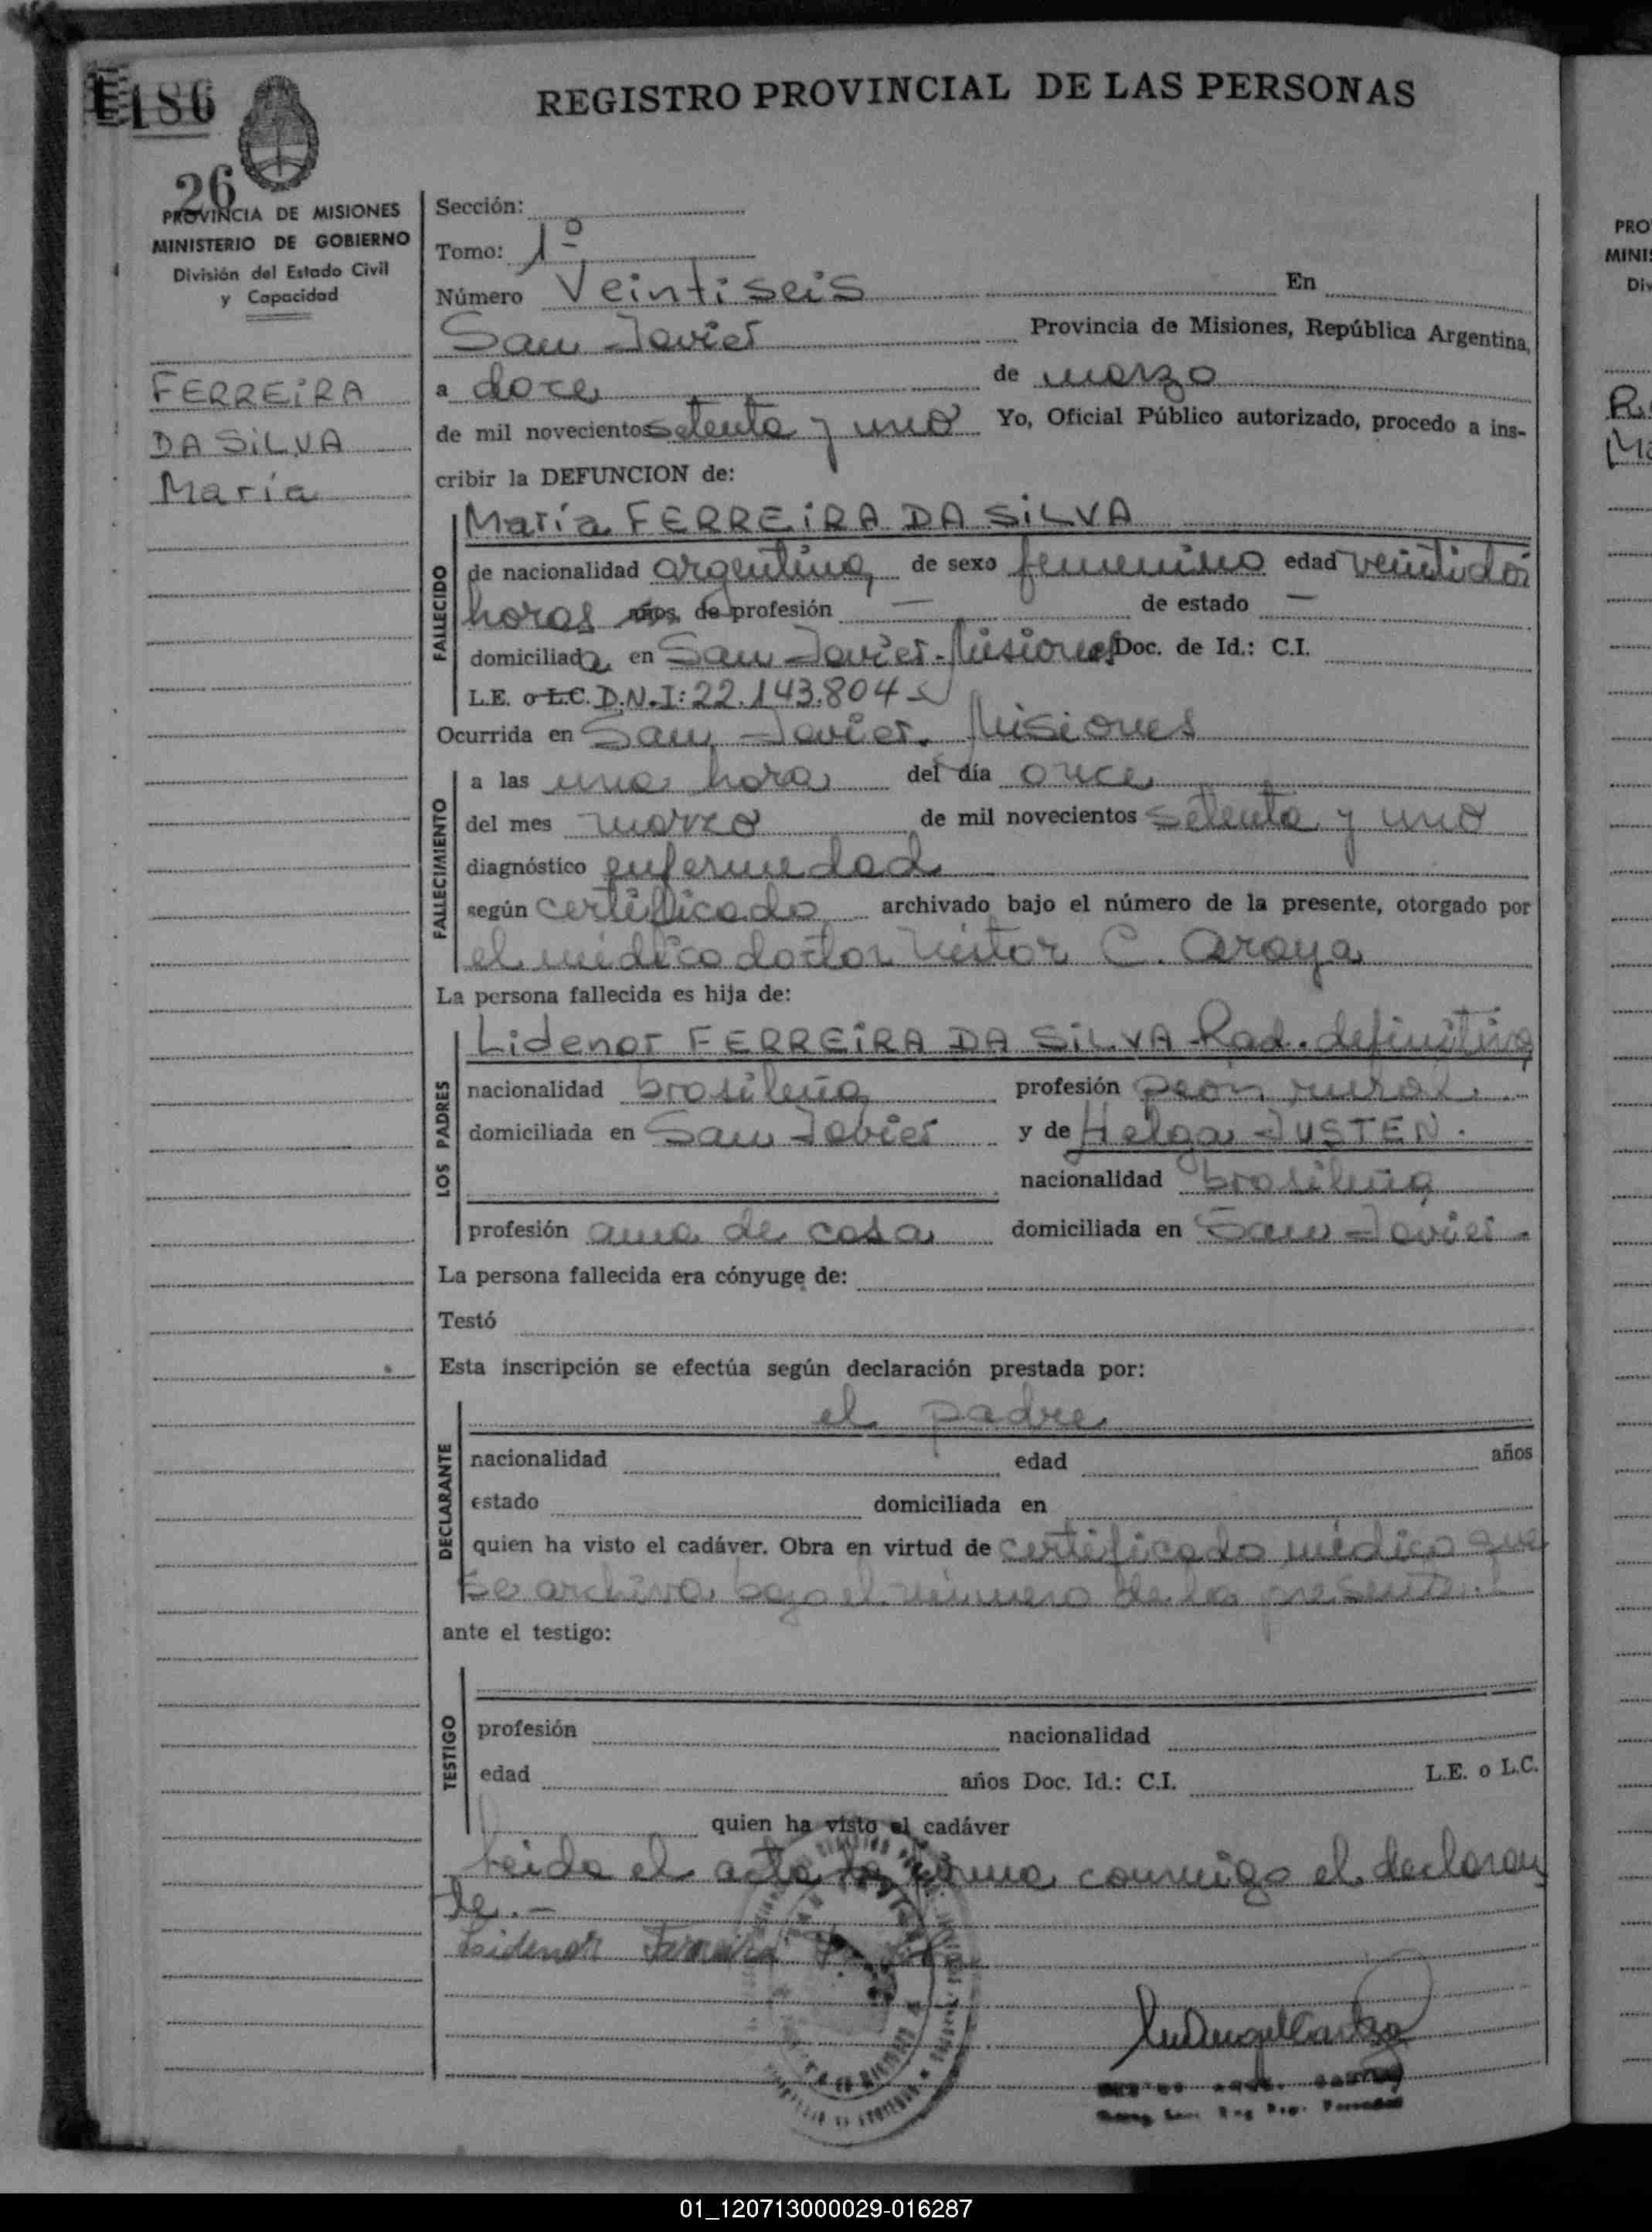 186
REGISTRO PROVINCIAL DE LAS PERSONAS
26
PROVINCIA DE MISIONES
MINISTERIO DE GOBIERNO
División del Estado Civil
y Capacidad
FERREIRA
DA SILVA
María
Sección:
Tomo: 1º
Número Veintiseis En
San Javier Provincia de Misiones, República Argentina,
a doce de marzo
de mil novecientos setenta y uno Yo, Oficial Público autorizado, procedo a ins-
cribir la DEFUNCION de:
FALLECIDO
María FERREIRA DA SILVA
de nacionalidad argentina, de sexo femenino edad veintidos
horas años, de profesión — de estado —
domiciliada en San Javier-Misiones Doc. de Id.: C.I.
L.E. o L.C. D.N.I: 22.143.804
Ocurrida en San Javier. Misiones
FALLECIMIENTO
a las una hora del día once
del mes marzo de mil novecientos setenta y uno
diagnóstico enfermedad
según certificado archivado bajo el número de la presente, otorgado por
el médico doctor Nestor C. Araya
La persona fallecida es hija de:
LOS PADRES
Lidenor FERREIRA DA SILVA Rad. definitiva
nacionalidad brasileña profesión peon rural.
domiciliada en San Javier y de Helga JUSTEN.
nacionalidad brasileña
profesión ama de casa domiciliada en San Javier.
La persona fallecida era cónyuge de:
Testó
Esta inscripción se efectúa según declaración prestada por:
DECLARANTE
el padre
nacionalidad edad años
estado domiciliada en
quien ha visto el cadáver. Obra en virtud de certificado médico que
se archiva bajo el número de la presente.
ante el testigo:
TESTIGO
profesión nacionalidad
edad años Doc. Id.: C.I. L.E. o L.C.
quien ha visto el cadáver
Leida el acta la firma conmigo el declaran
te.-
Lidenor Ferreira
PRO
MINIS
Div
01_120713000029-016287